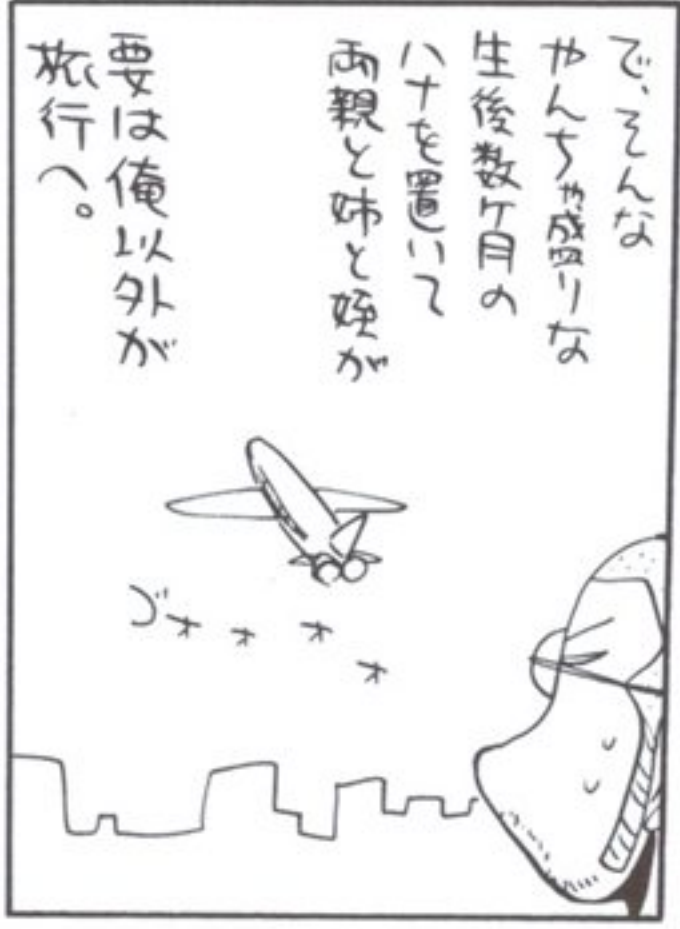 で、そんな
やんちゃ盛りな
生後数ヶ月の
ハナを置いて
両親と姉と姪が
要は俺以外が
旅行へ。
ゴォォォォ